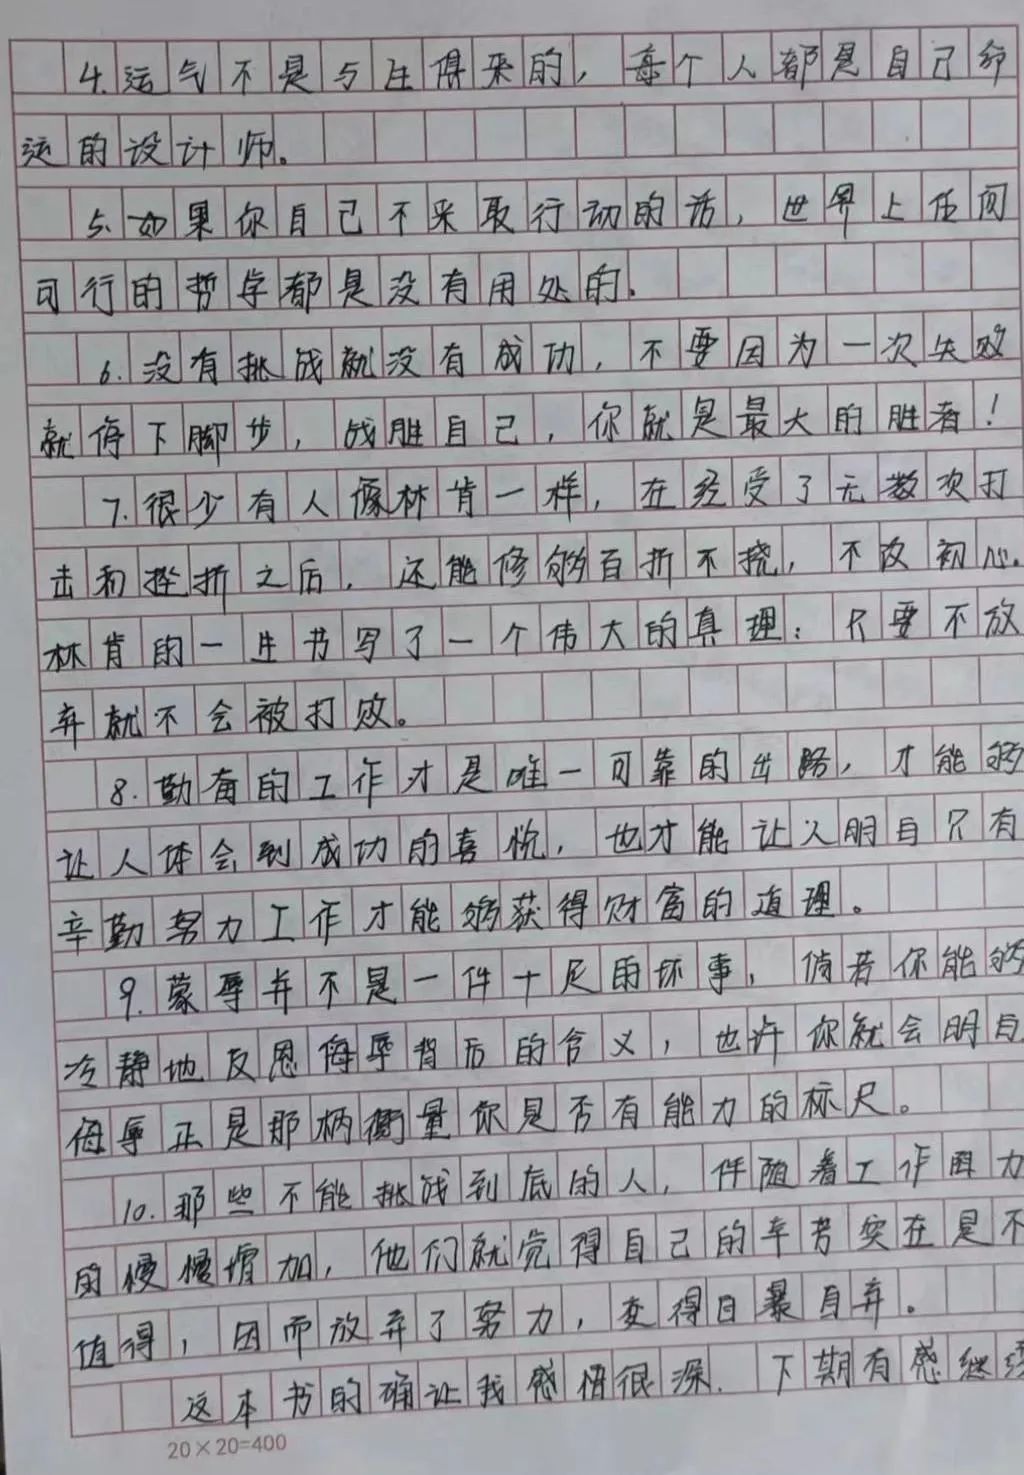 4.运气不是与生俱来的，每个人都是自己命
运的设计师。
5.如果你自己不采取行动的话，世界上任何
可行的哲学都是没有用处的.
6.没有挑战就没有成功，不要因为一次失败
就停下脚步，战胜自己，你就是最大的胜者！
7.很少有人像林肯一样，在经受了无数次打
击和挫折之后，还能修够百折不挠，不改初心.
林肯的一生书写了一个伟大的真理：只要不放
弃就不会被打败。
8.勤奋的工作才是唯一可靠的出路，才能够
让人体会到成功的喜悦，也才能让人明白只有
辛勤努力工作才能够获得财富的道理。
9.蒙辱并不是一件十足的坏事，倘若你能够
冷静地反思侮辱背后的含义，也许你就会明白
侮辱正是那柄衡量你是否有能力的标尺。
10.那些不能挑战到底的人，伴随着工作阻力
的慢慢增加，他们就觉得自己的辛劳实在是不
值得，因而放弃了努力，变得自暴自弃。
这本书的确让我感悟很深.下期有感继续
20×20=400